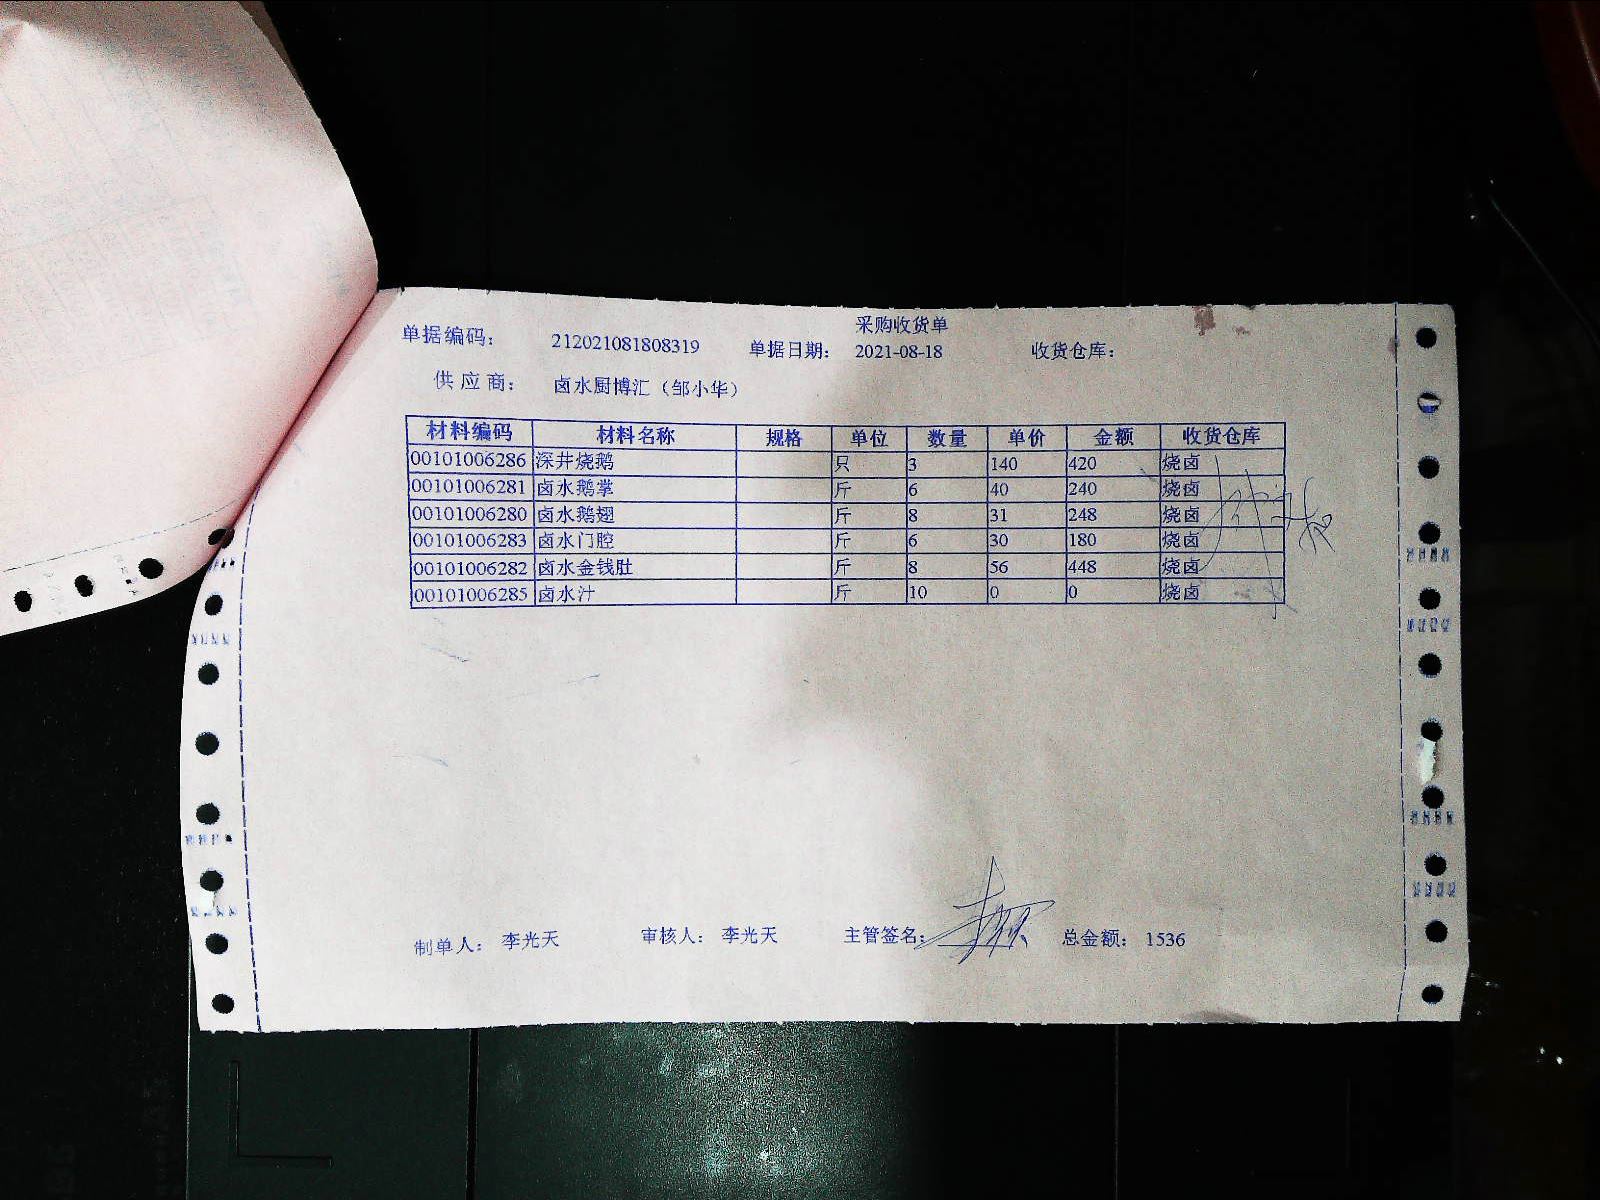 采购收货单
单据编码： 212021081808319 单据日期： 2021-08-18 收货仓库：
供应商： 卤水厨博汇（邹小华）
材料编码 材料名称 规格 单位 数量 单价 金额 收货仓库
00101006286 深井烧鹅 只 3 140 420 烧卤
00101006281 卤水鹅掌 斤 6 40 240 烧卤
00101006280 卤水鹅翅 斤 8 31 248 烧卤
00101006283 卤水门腔 斤 6 30 180 烧卤
00101006282 卤水金钱肚 斤 8 56 448 烧卤
00101006285 卤水汁 斤 10 0 0 烧卤
制单人： 李光天 审核人： 李光天 主管签名： 总金额： 1536